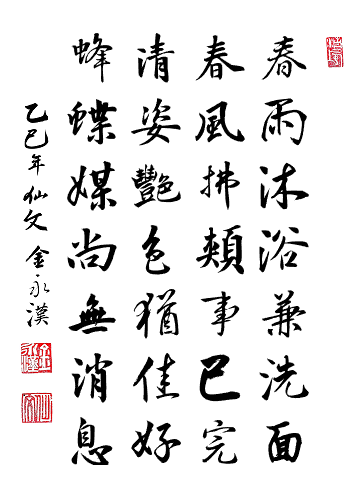 春雨沐浴兼洗面
春風拂頰事已完
清姿艷色猶佳好
蜂蝶媒尚無消息
乙巳年仙文金永漢